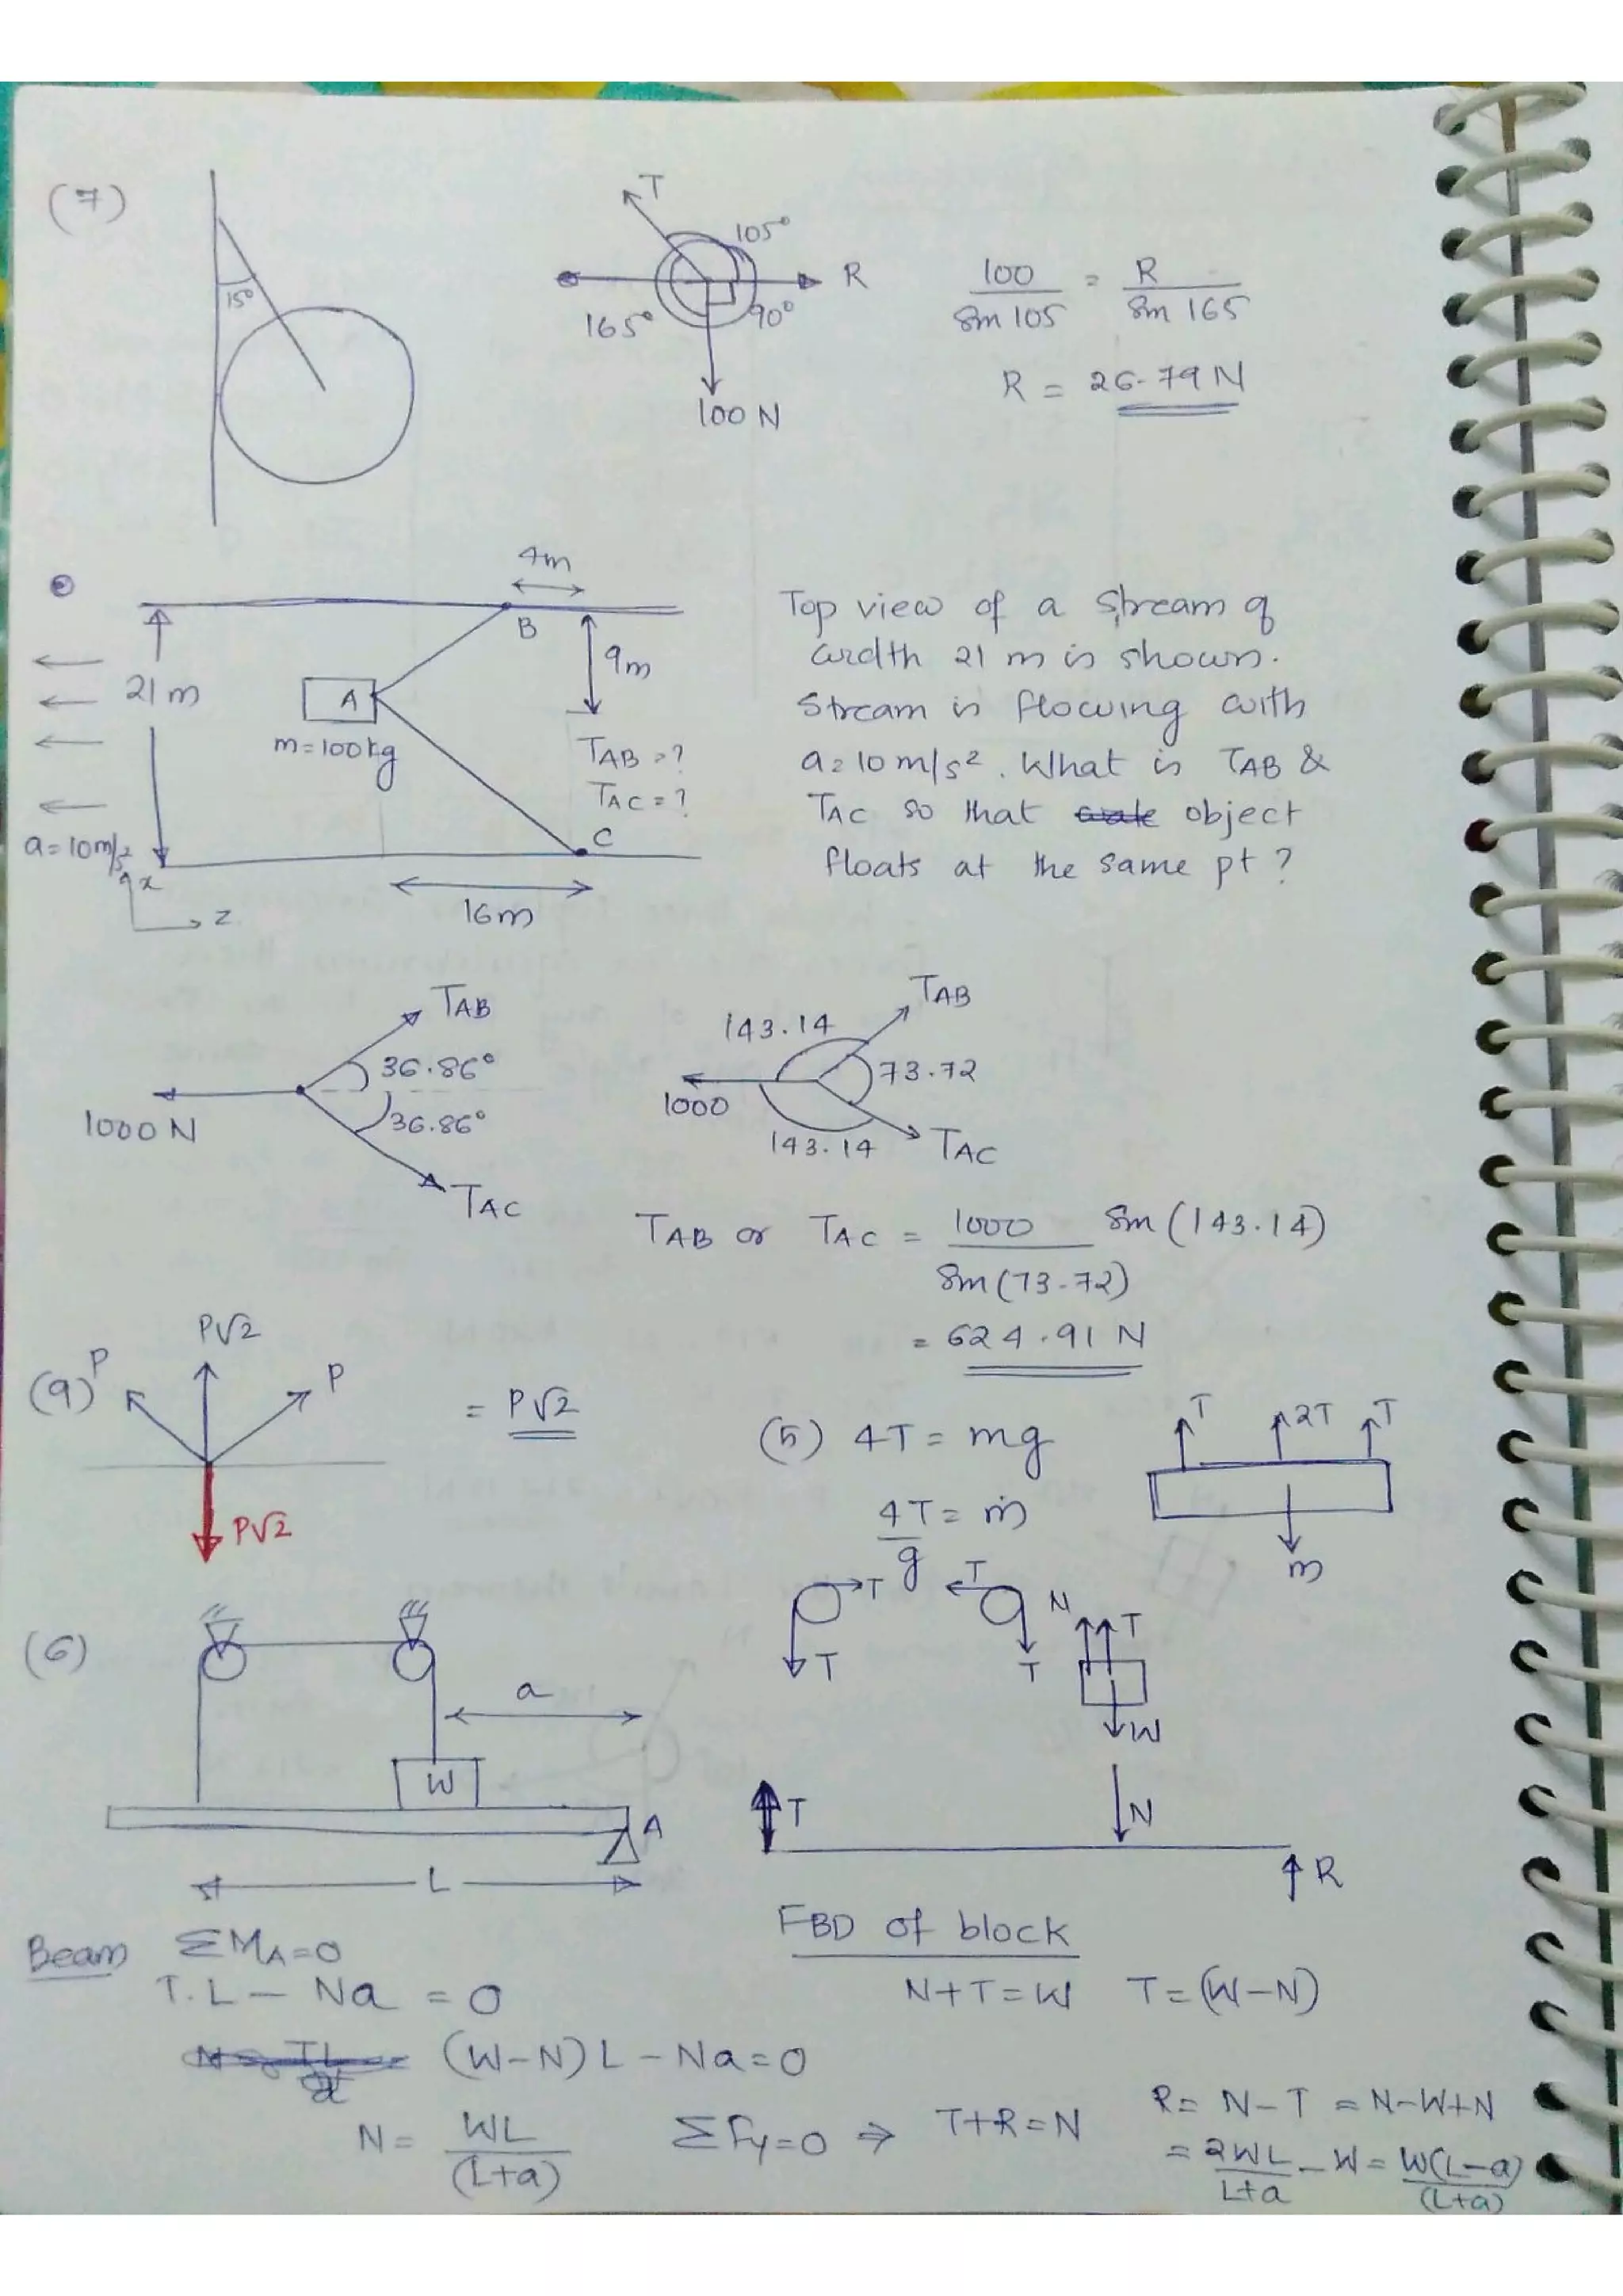 (7)
15°
T
105°
R
165°
90°
100 N
100 = R
sin 105 sin 165
R = 26.79 N
4m
B
21 m
9m
A
m=100kg
TAB = ?
TAC = ?
C
a=10m/s²
x
z
16m
Top view of a stream of
width 21 m is shown.
Stream is flowing with
a=10 m/s². What is TAB &
TAC so that object
floats at the same pt?
TAB
36.86°
36.86°
1000 N
TAC
TAB
143.14
73.72
1000
143.14
TAC
TAB or TAC = 1000 sin (143.14)
sin (73.72)
= 624.91 N
(9)
P
P√2
P
= P√2
P√2
(5) 4T = mg
4T = m
g
T
2T
T
m
(6)
a
W
A
L
T
T
T
T
N
T
W
T
N
R
FBD of block
N+T=W T=(W-N)
Beam ΣMA=0
T.L - Na = 0
(W-N) L - Na=0
N = WL
(L+a)
ΣFy=0 ⇒ T+R=N
R= N-T = N-W+N
= 2WL - W = W(L-a)
L+a (L+a)